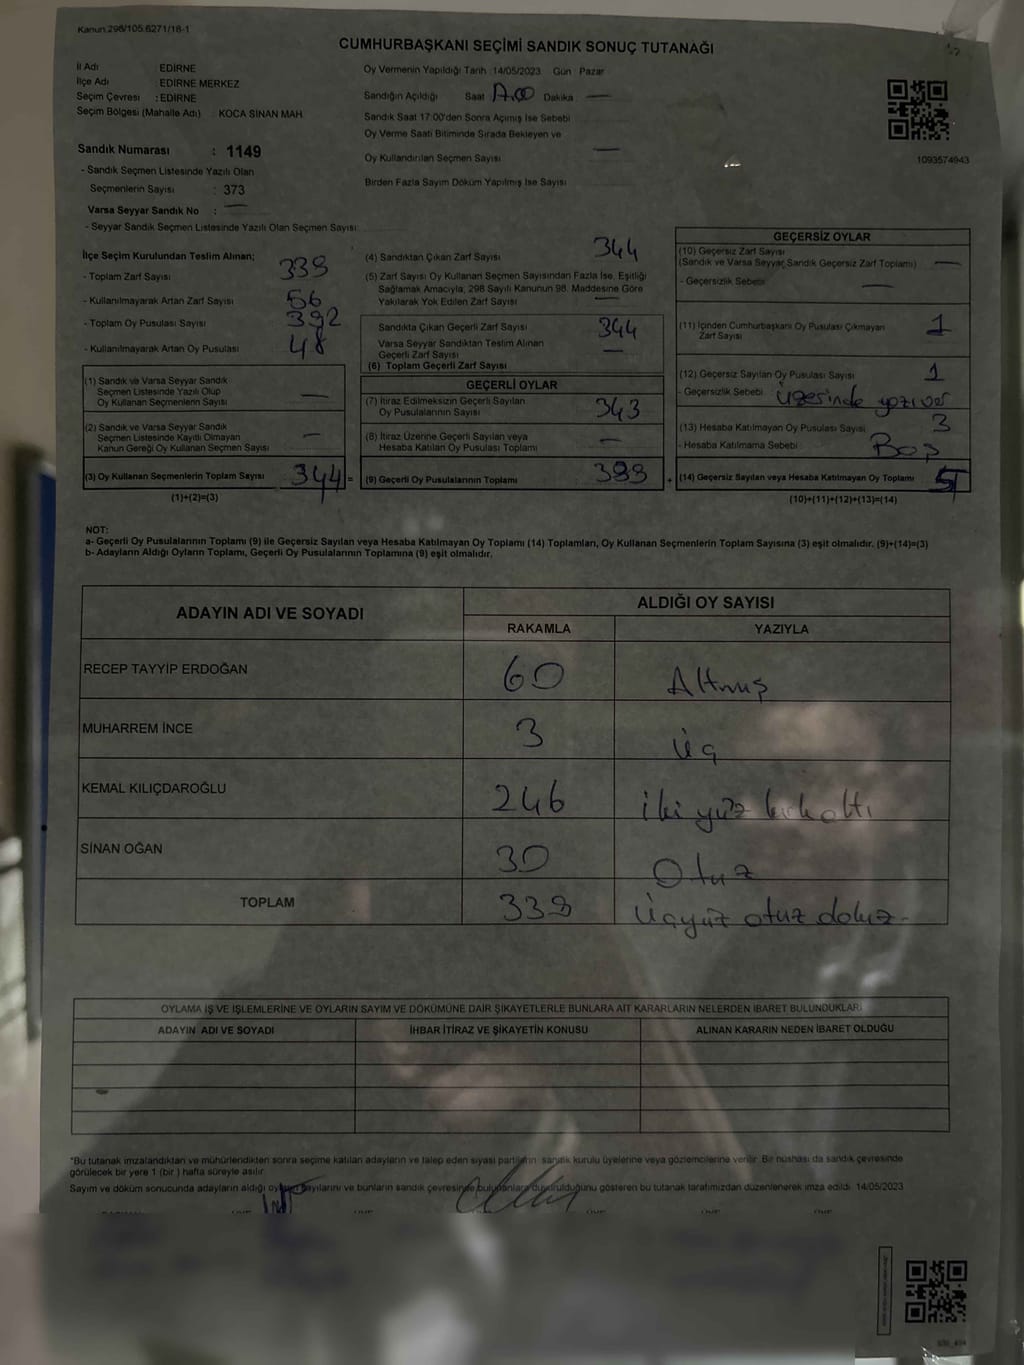 Kanun 298/105.6271/18-1
CUMHURBAŞKANI SEÇİMİ SANDIK SONUÇ TUTANAĞI
İl Adı EDİRNE
İlçe Adı EDİRNE MERKEZ
Seçim Çevresi : EDİRNE
Seçim Bölgesi (Mahalle Adı) KOCA SİNAN MAH.
Sandık Numarası : 1149
- Sandık Seçmen Listesinde Yazılı Olan
Seçmenlerin Sayısı : 373
Varsa Seyyar Sandık No : —
- Seyyar Sandık Seçmen Listesinde Yazılı Olan Seçmen Sayısı
Oy Vermenin Yapıldığı Tarih 14/05/2023 Gün Pazar
Sandığın Açıldığı Saat Dakika —
Sandık Saat 17:00'den Sonra Açımış İse Sebebi
Oy Verme Saati Bitiminde Sırada Bekleyen ve
Oy Kullandırılan Seçmen Sayısı —
Birden Fazla Sayım Döküm Yapılmış İse Sayısı
1093574943
İlçe Seçim Kurulundan Teslim Alınan;
- Toplam Zarf Sayısı
- Kullanılmayarak Artan Zarf Sayısı 56
- Toplam Oy Pusulası Sayısı 392
- Kullanılmayarak Artan Oy Pusulası 48
(1) Sandık ve Varsa Seyyar Sandık
Seçmen Listesinde Yazılı Olup
Oy Kullanan Seçmenlerin Sayısı —
(2) Sandık ve Varsa Seyyar Sandık
Seçmen Listesinde Kayıtlı Olmayan
Kanun Gereği Oy Kullanan Seçmen Sayısı —
(3) Oy Kullanan Seçmenlerin Toplam Sayısı 344
(1)+(2)=(3)
(4) Sandıktan Çıkan Zarf Sayısı 344
(5) Zarf Sayısı Oy Kullanan Seçmen Sayısından Fazla İse, Eşitliği
Sağlamak Amacıyla, 298 Sayılı Kanunun 98. Maddesine Göre
Yakılarak Yok Edilen Zarf Sayısı —
Sandıkta Çıkan Geçerli Zarf Sayısı 344
Varsa Seyyar Sandıktan Teslim Alınan
Geçerli Zarf Sayısı —
(6) Toplam Geçerli Zarf Sayısı
GEÇERLİ OYLAR
(7) İtiraz Edilmeksizin Geçerli Sayılan
Oy Pusulalarının Sayısı 343
(8) İtiraz Üzerine Geçerli Sayılan veya
Hesaba Katılan Oy Pusulası Toplamı —
= (9) Geçerli Oy Pusulalarının Toplamı
GEÇERSİZ OYLAR
(10) Geçersiz Zarf Sayısı
(Sandık ve Varsa Seyyar Sandık Geçersiz Zarf Toplamı) —
- Geçersizlik Sebebi —
(11) İçinden Cumhurbaşkanı Oy Pusulası Çıkmayan
Zarf Sayısı 1
(12) Geçersiz Sayılan Oy Pusulası Sayısı 1
- Geçersizlik Sebebi üzerinde yazı var
(13) Hesaba Katılmayan Oy Pusulası Sayısı 3
- Hesaba Katılmama Sebebi Boş
+ (14) Geçersiz Sayılan veya Hesaba Katılmayan Oy Toplamı 5
(10)+(11)+(12)+(13)=(14)
NOT:
a- Geçerli Oy Pusulalarının Toplamı (9) ile Geçersiz Sayılan veya Hesaba Katılmayan Oy Toplamı (14) Toplamları, Oy Kullanan Seçmenlerin Toplam Sayısına (3) eşit olmalıdır. (9)+(14)=(3)
b- Adayların Aldığı Oyların Toplamı, Geçerli Oy Pusulalarının Toplamına (9) eşit olmalıdır.
ADAYIN ADI VE SOYADI ALDIĞI OY SAYISI
RAKAMLA YAZIYLA
RECEP TAYYİP ERDOĞAN 60 Altmış
MUHARREM İNCE 3 Üç
KEMAL KILIÇDAROĞLU 246 iki yüz kırk altı
SİNAN OĞAN 30 Otuz
TOPLAM 339 Üçyüz otuz dokuz
OYLAMA İŞ VE İŞLEMLERİNE VE OYLARIN SAYIM VE DÖKÜMÜNE DAİR ŞİKAYETLERLE BUNLARA AİT KARARLARIN NELERDEN İBARET BULUNDUKLARI
ADAYIN ADI VE SOYADI İHBAR İTİRAZ VE ŞİKAYETİN KONUSU ALINAN KARARIN NEDEN İBARET OLDUĞU
"Bu tutanak imzalandıktan ve mühürlendikten sonra seçime katılan adayların ve talep eden siyasi partilerin sandık kurulu üyelerine veya gözlemcilerine verilir. Bir nüshası da sandık çevresinde
görülecek bir yere 1 (bir ) hafta süreyle asılır.
Sayım ve döküm sonucunda adayların aldığı oyların sayılarını ve bunların sandık çevresinde bulunanlara duyurulduğunu gösteren bu tutanak tarafımızdan düzenlenerek imza edildi. 14/05/2023